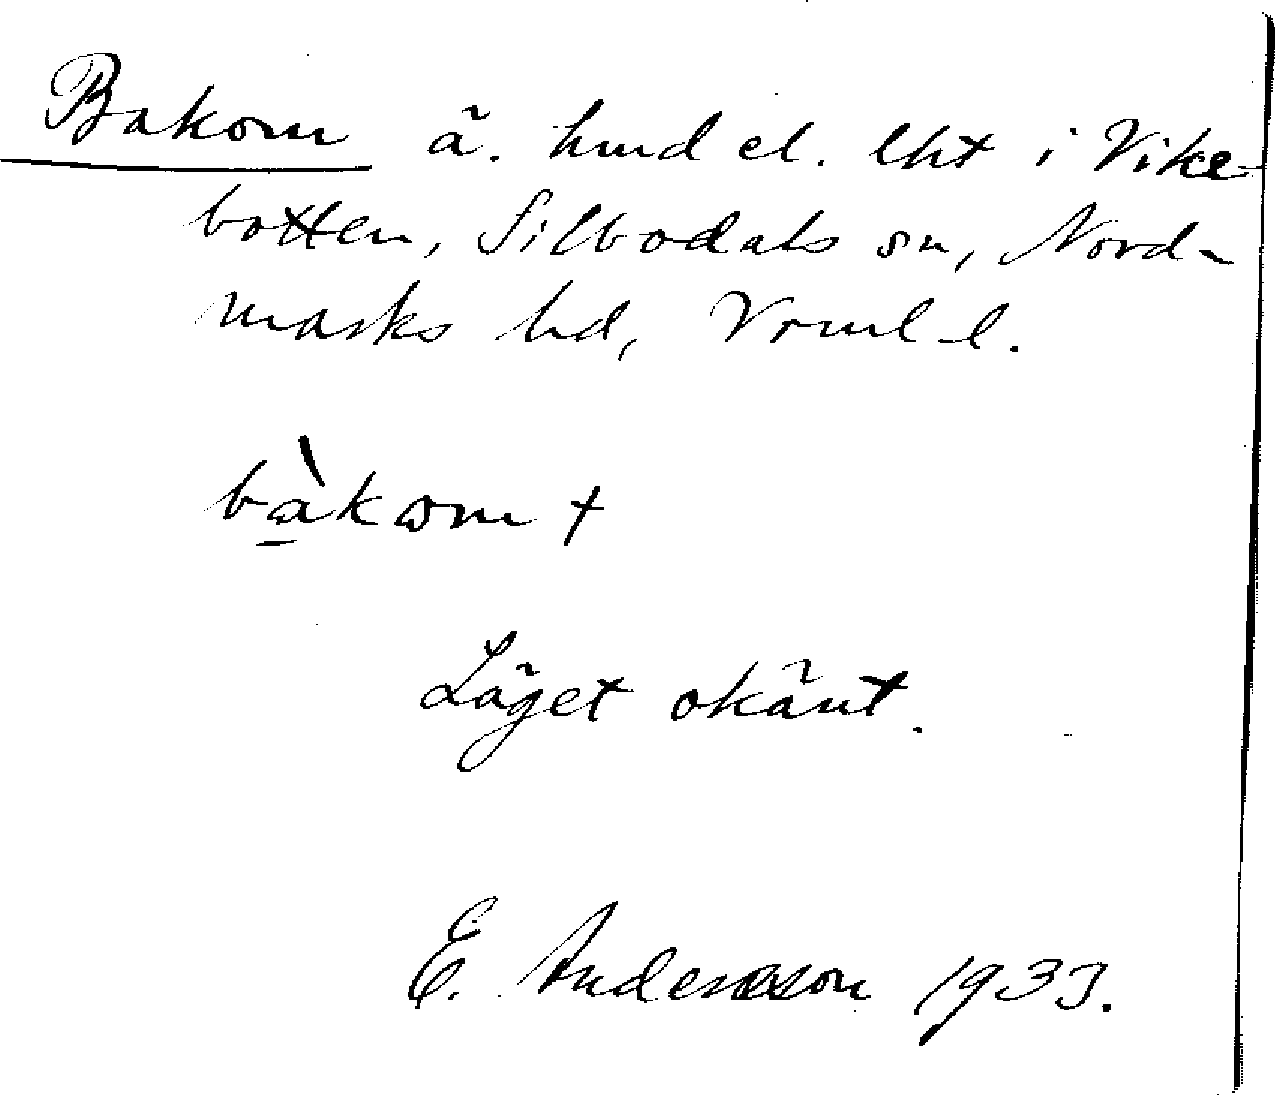 Bakom ä. hmd el. lht i Vike-
botten, Silbodals sn, Nord-
marks hd, Vrml l.
bàkom +
Läget okänt.
E. Andersson 1933.